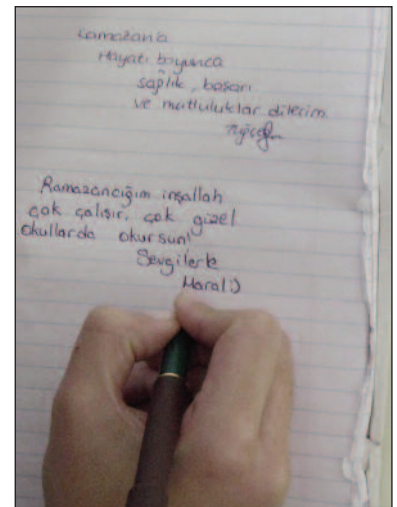 Ramazana
Hayatı boyunca
sağlık, başarı
ve mutluluklar dilerim
Ramazancığım inşallah
çok çalışır, çok güzel
okullarda okursun!
Sevgilerle
Maral:)